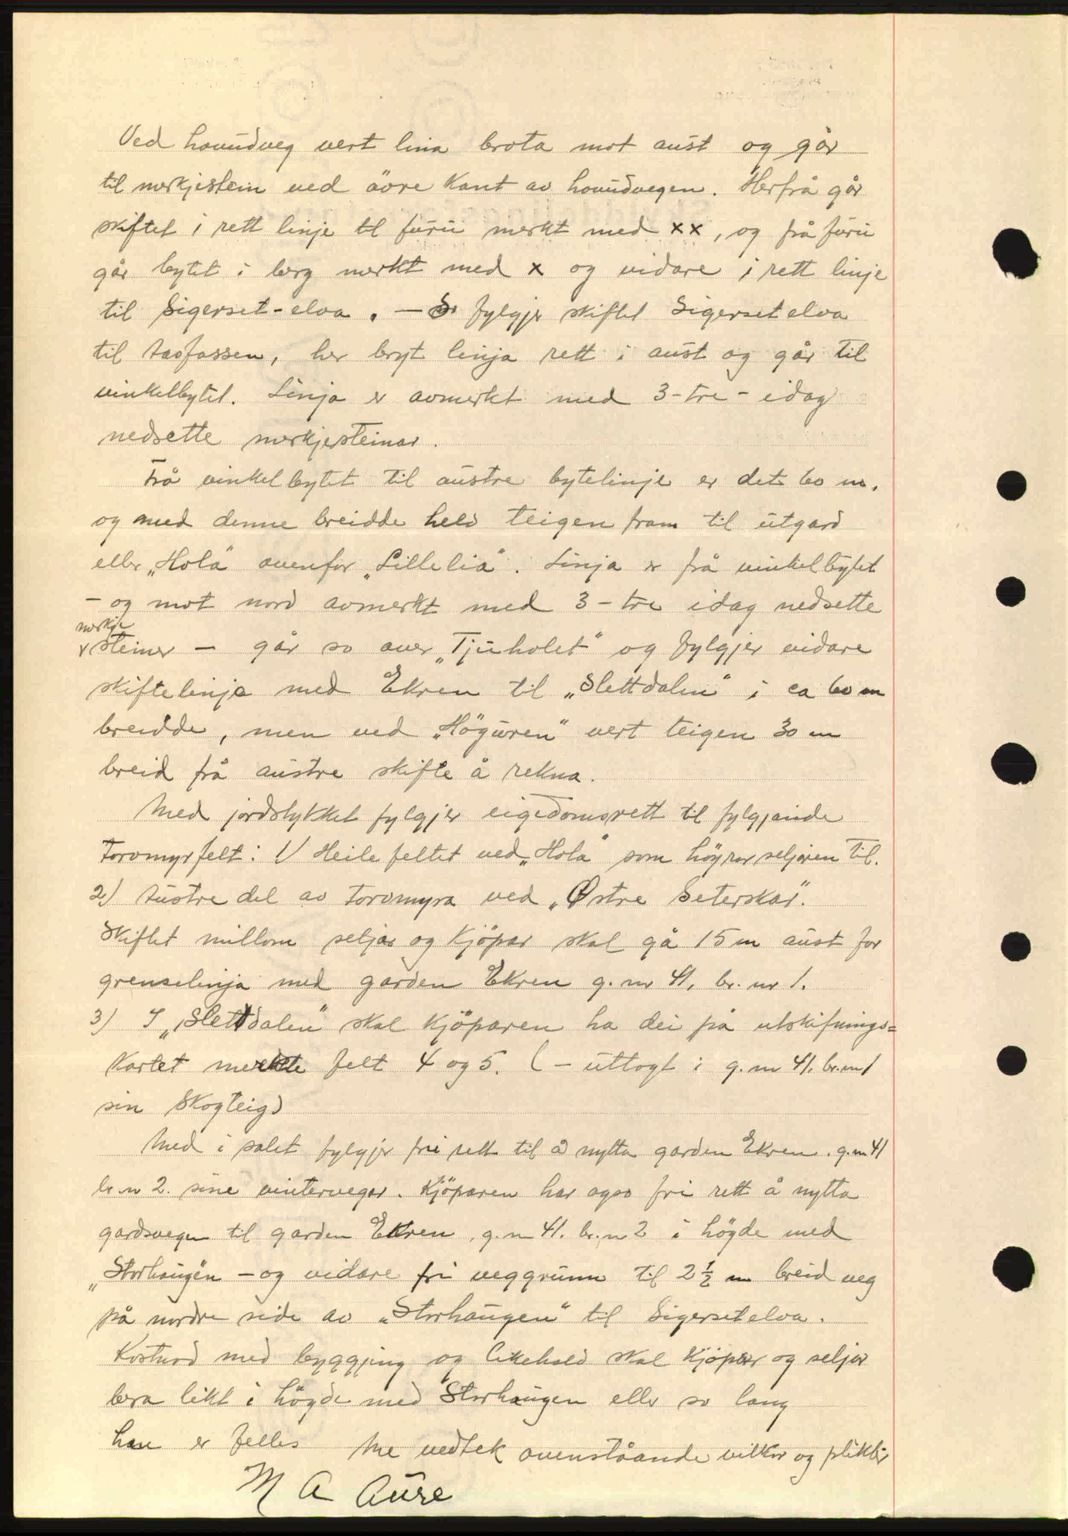 Ved hovudveg vert lina brota mot aust og går
til merkjestein ved övre kant av hovudvegen. Herfrå går
skiftet i rett linje til furu merkt med xx, og frå furu
går bytet i berg merkt med x og vidare i rett linje
til Sigerset-elva. — So fylgjer skiftet Sigersetelva
til, her bryt linja rett i aust og går til
vinkelbytet. Linja er avmerkt med 3-tre- idag
nedsette merkjesteinar.
Frå vinkelbytet til austre bytelinje er det 60 m.
og med denne breidde held teigen fram til utgard
eller "Hola" ovenfor "Lillelia". Linja er frå vinkelbytet
- og mot nord avmerkt med 3-tre idag nedsette
merkje
v steiner — går so over "Tjuholet" og fylgjer vidare
skiftelinje med Ekren til "Slettdalen" i ca 60 m
breidde, men ved "Höguren" vert teigen 30 m
breid frå austre skifte å rekna.
Med jordstykket fylgjer eigedomsrett til fylgjande
torvmyrfelt: 1/ Heile feltet ved "Hola" som höyrer seljaren til.
2) Austre del av torvmyra ved "Østre Seterskar".
Skiftet millom seljar og kjöpar skal gå 15 m aust for
grenselinja med garden Ekren g.nr 41, br. nr 1.
3) I "Slettdalen" skal kjöparen ha dei på utskiftnings=
kartet merkte felt 4 og 5. (- uttogt i g.nr 41. br.nr 1
sin skogteig)
Med i salet fylgjer fri rett til å nytta garden Ekren. g.nr 41
br.nr 2. sine vintervegar. Kjöparen har ogso fri rett å nytta
gardsvegen til garden Ekren, g.nr 41. br.nr 2 i högde med
"Storhaugen - og vidare fri veggrunn til 2 1/2 m breid veg
på nordre side av "Storhaugen" til Sigersetelva.
Kostnad med byggjing og likehold skal kjöpar og seljar
bera likt i högde med Storhaugen eller so lang
han er felles Me vedtek ovenståande vilkår og plikter
M A Aure